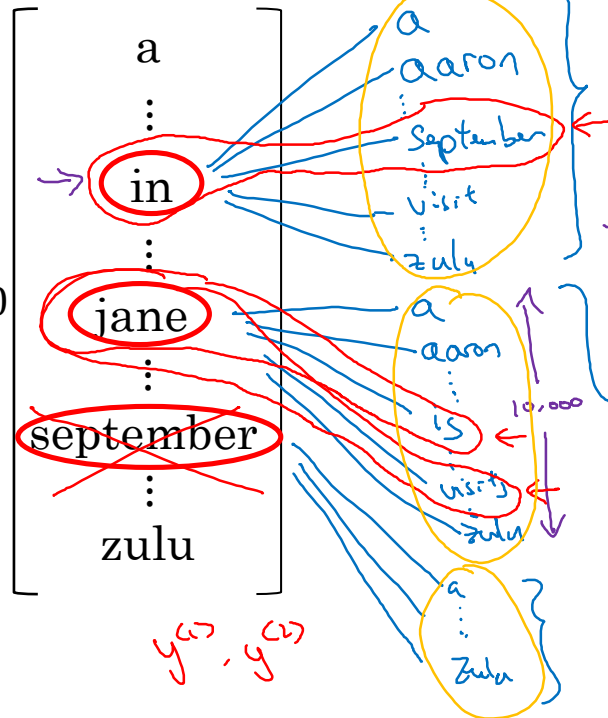 a
⋮
in
⋮
jane
⋮
september
⋮
zulu
a
aaron
⋮
september
⋮
visit
⋮
zulu
a
aaron
⋮
is
⋮
visits
⋮
zulu
10,000
a
⋮
zulu
0
y<1>, y<2>